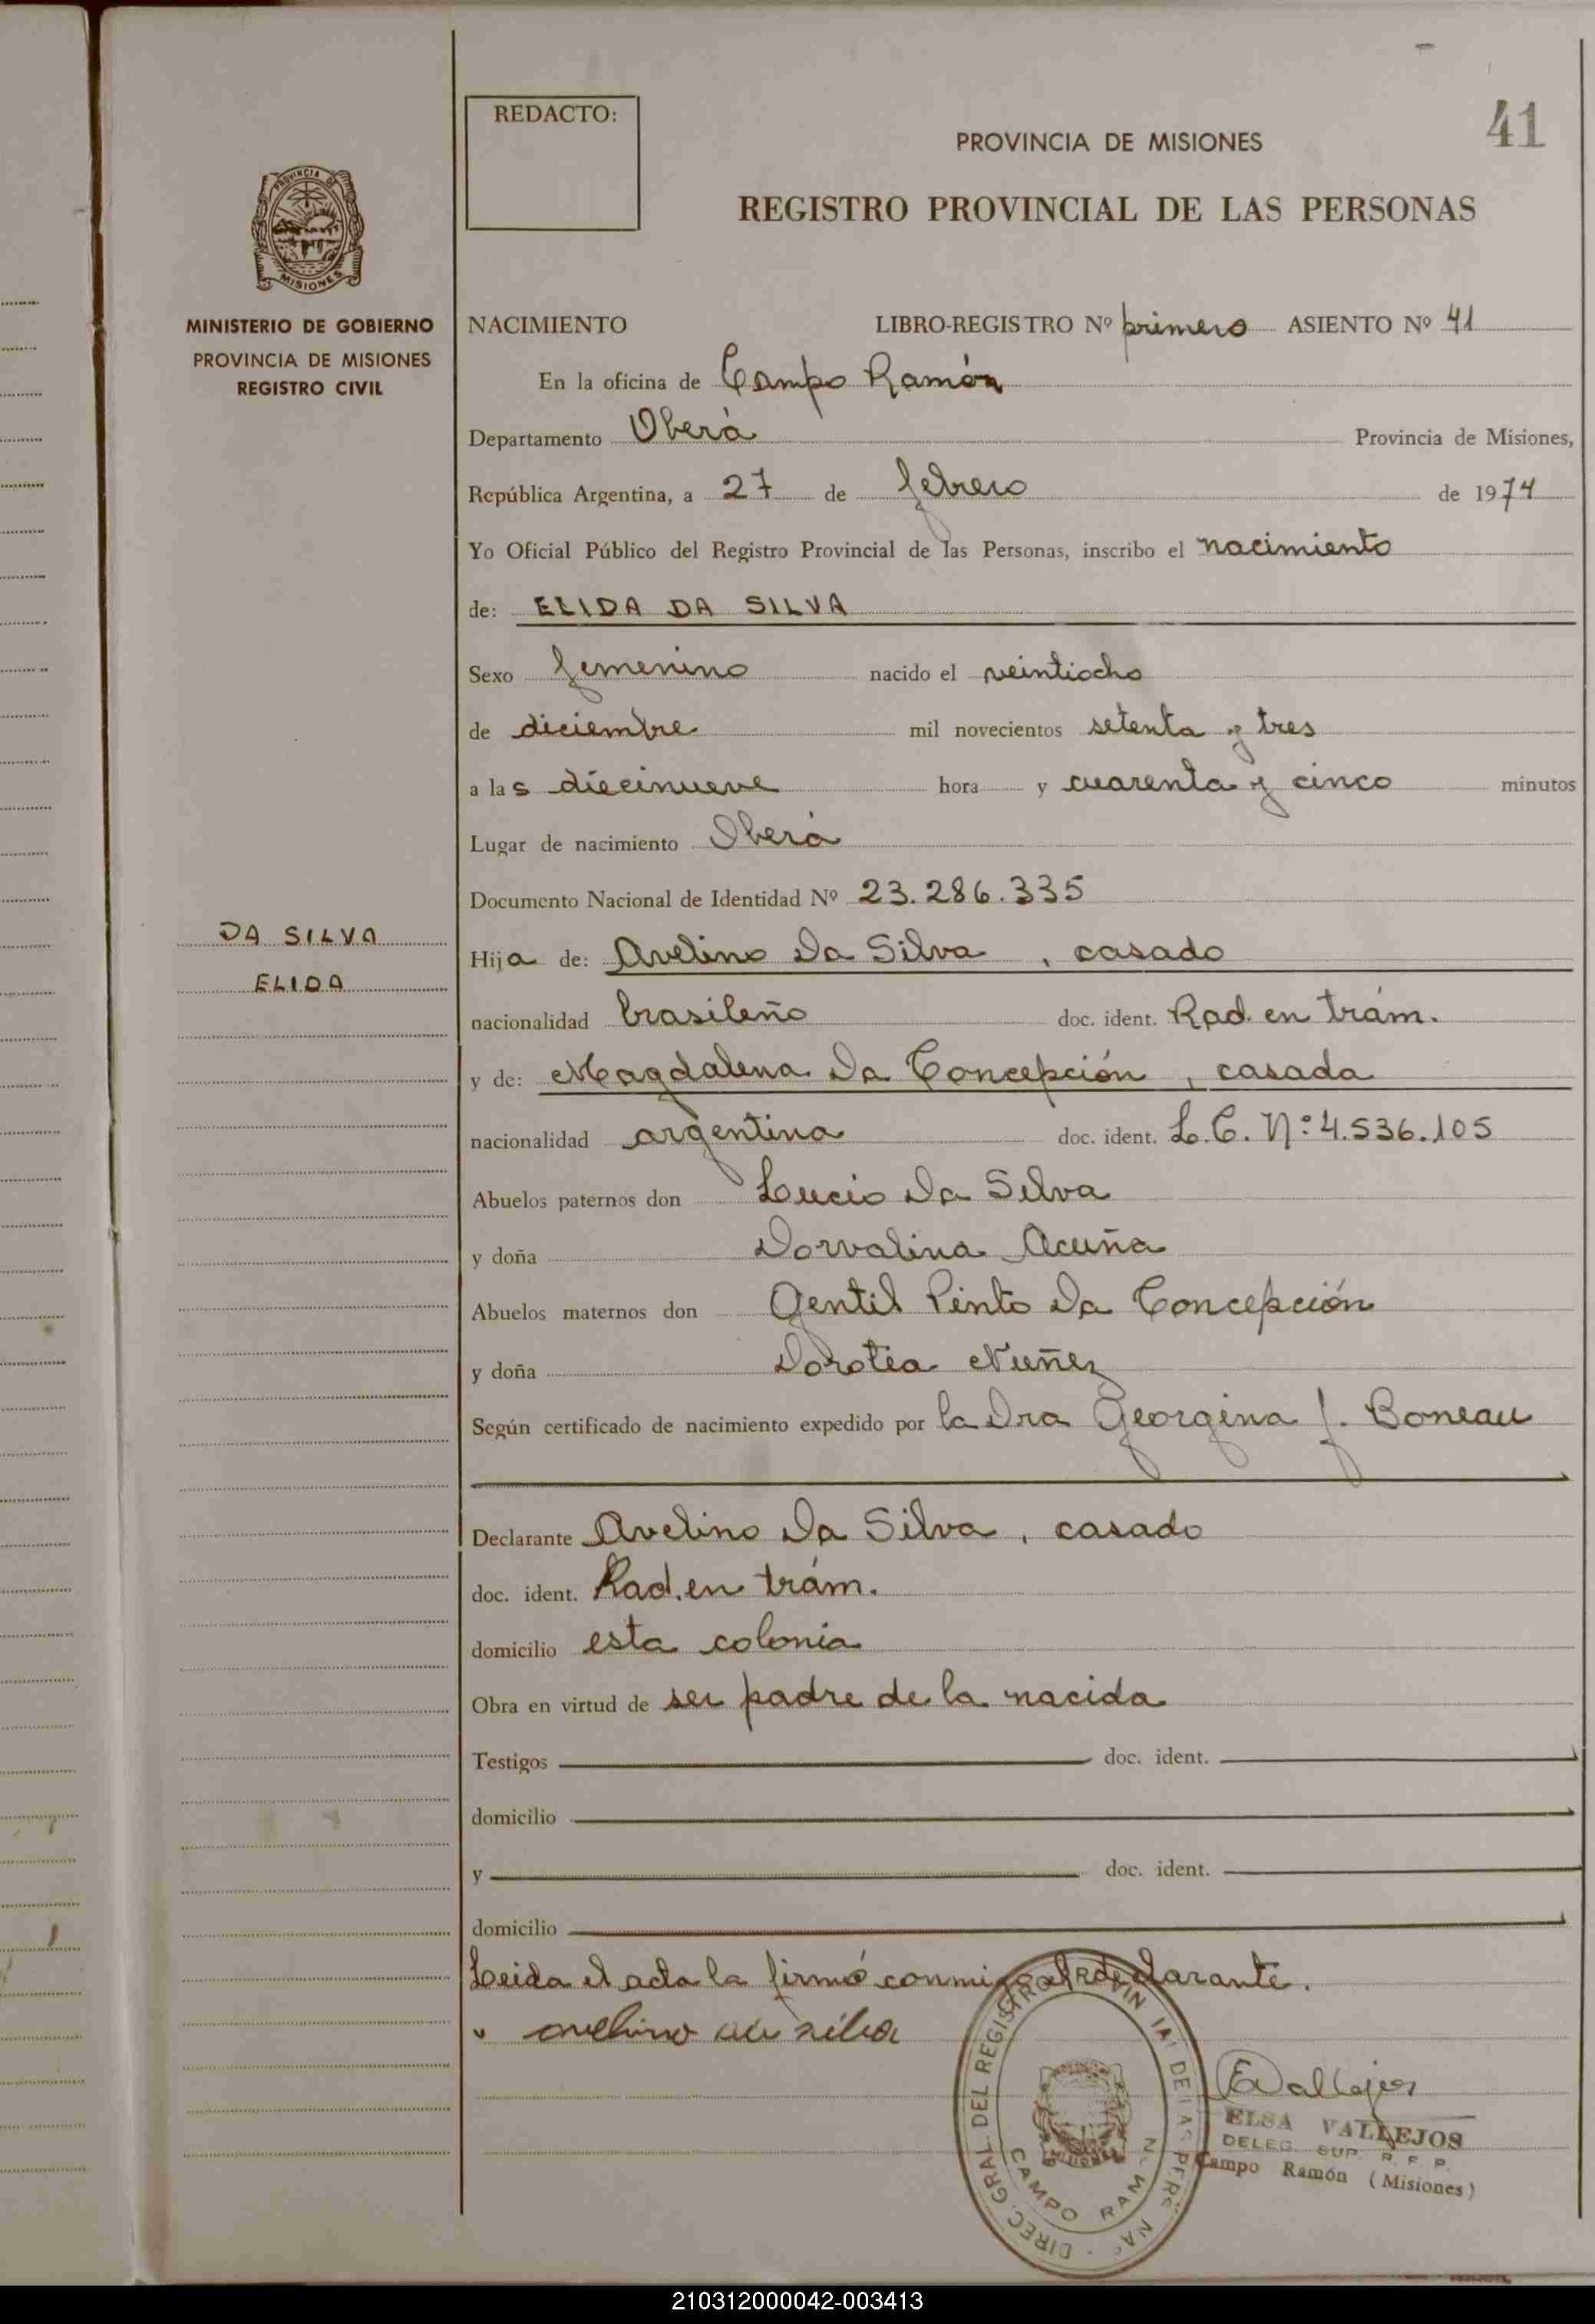 REDACTO:
41
PROVINCIA DE MISIONES
REGISTRO PROVINCIAL DE LAS PERSONAS
PROVINCIA DE
MISIONES
MINISTERIO DE GOBIERNO
PROVINCIA DE MISIONES
REGISTRO CIVIL
NACIMIENTO LIBRO-REGISTRO Nº primero ASIENTO Nº 41
En la oficina de Campo Ramón
Departamento Oberá Provincia de Misiones,
República Argentina, a 27 de febrero de 1974
Yo Oficial Público del Registro Provincial de las Personas, inscribo el nacimiento
de: ELIDA DA SILVA
Sexo femenino nacido el veintiocho
de diciembre mil novecientos setenta y tres
a las diecinueve hora y cuarenta y cinco minutos
Lugar de nacimiento Oberá
Documento Nacional de Identidad Nº 23.286.335
DA SILVA
ELIDA
Hija de: Avelino Da Silva, casado
nacionalidad brasileño doc. ident. Rad. en trám.
y de: Magdalena Da Concepción, casada
nacionalidad argentina doc. ident. L.C. Nº 4.536.105
Abuelos paternos don Lucio Da Silva
y doña Dorvalina Acuña
Abuelos maternos don Gentil Pinto Da Concepción
y doña Dorotea Nuñez
Según certificado de nacimiento expedido por la Dra Georgina J. Boneau
Declarante Avelino Da Silva, casado
doc. ident. Rad. en trám.
domicilio esta colonia
Obra en virtud de ser padre de la nacida
Testigos doc. ident.
domicilio
y doc. ident.
domicilio
Leida el acta la firmó conmigo el declarante.
avelino da silva
DIREC. GRAL. DEL REGISTRO PROVINCIAL DE LAS PERSONAS
CAMPO RAMON
EVallejos
ELSA VALLEJOS
DELEG. SUP. R. P. P.
Campo Ramón (Misiones)
210312000042-003413